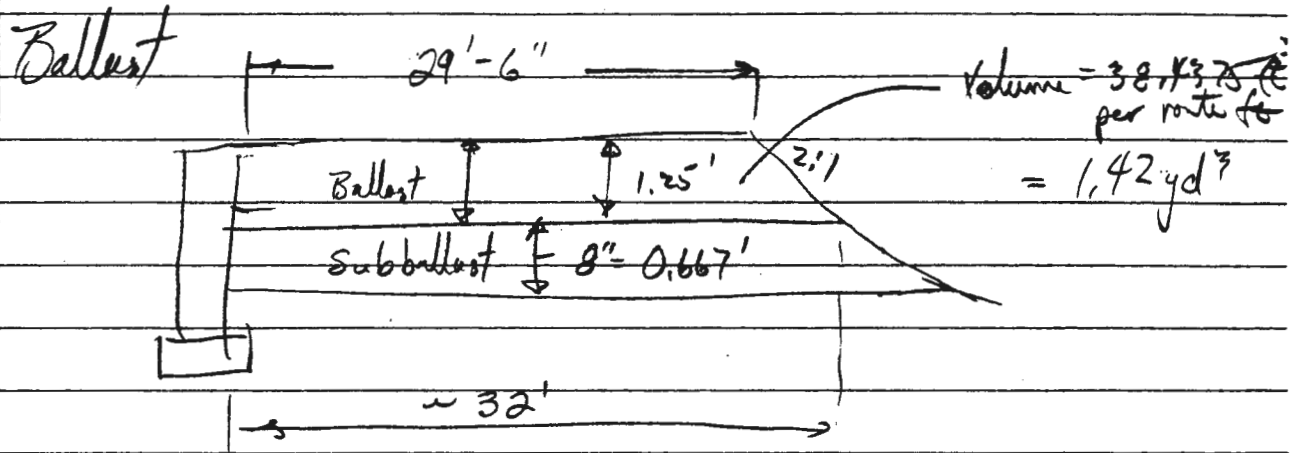 Ballast
29'-6"
Volume = 38.4375 ft³
per route ft
= 1.42 yd³
2:1
Ballast
1.25'
Subballast
8" = 0.667'
~ 32'